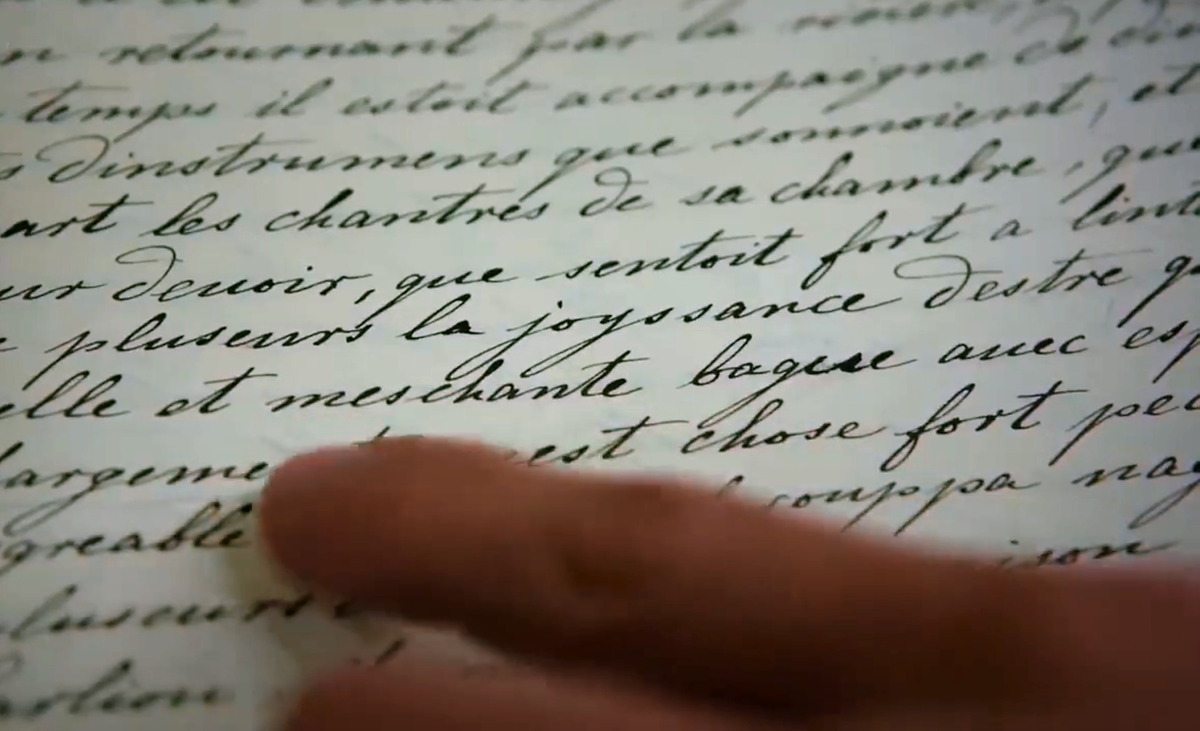 n retournant par la
temps il estoit accompaigne de
s dinstrumens que sonnoient, et
art les chantres de sa chambre, que
ur deuoir, que sentoit fort a lint
pluseurs la joyssance destre
elle et meschante bague auec esp
largeme est chose fort peu
greable souppa nag
luseurs ison